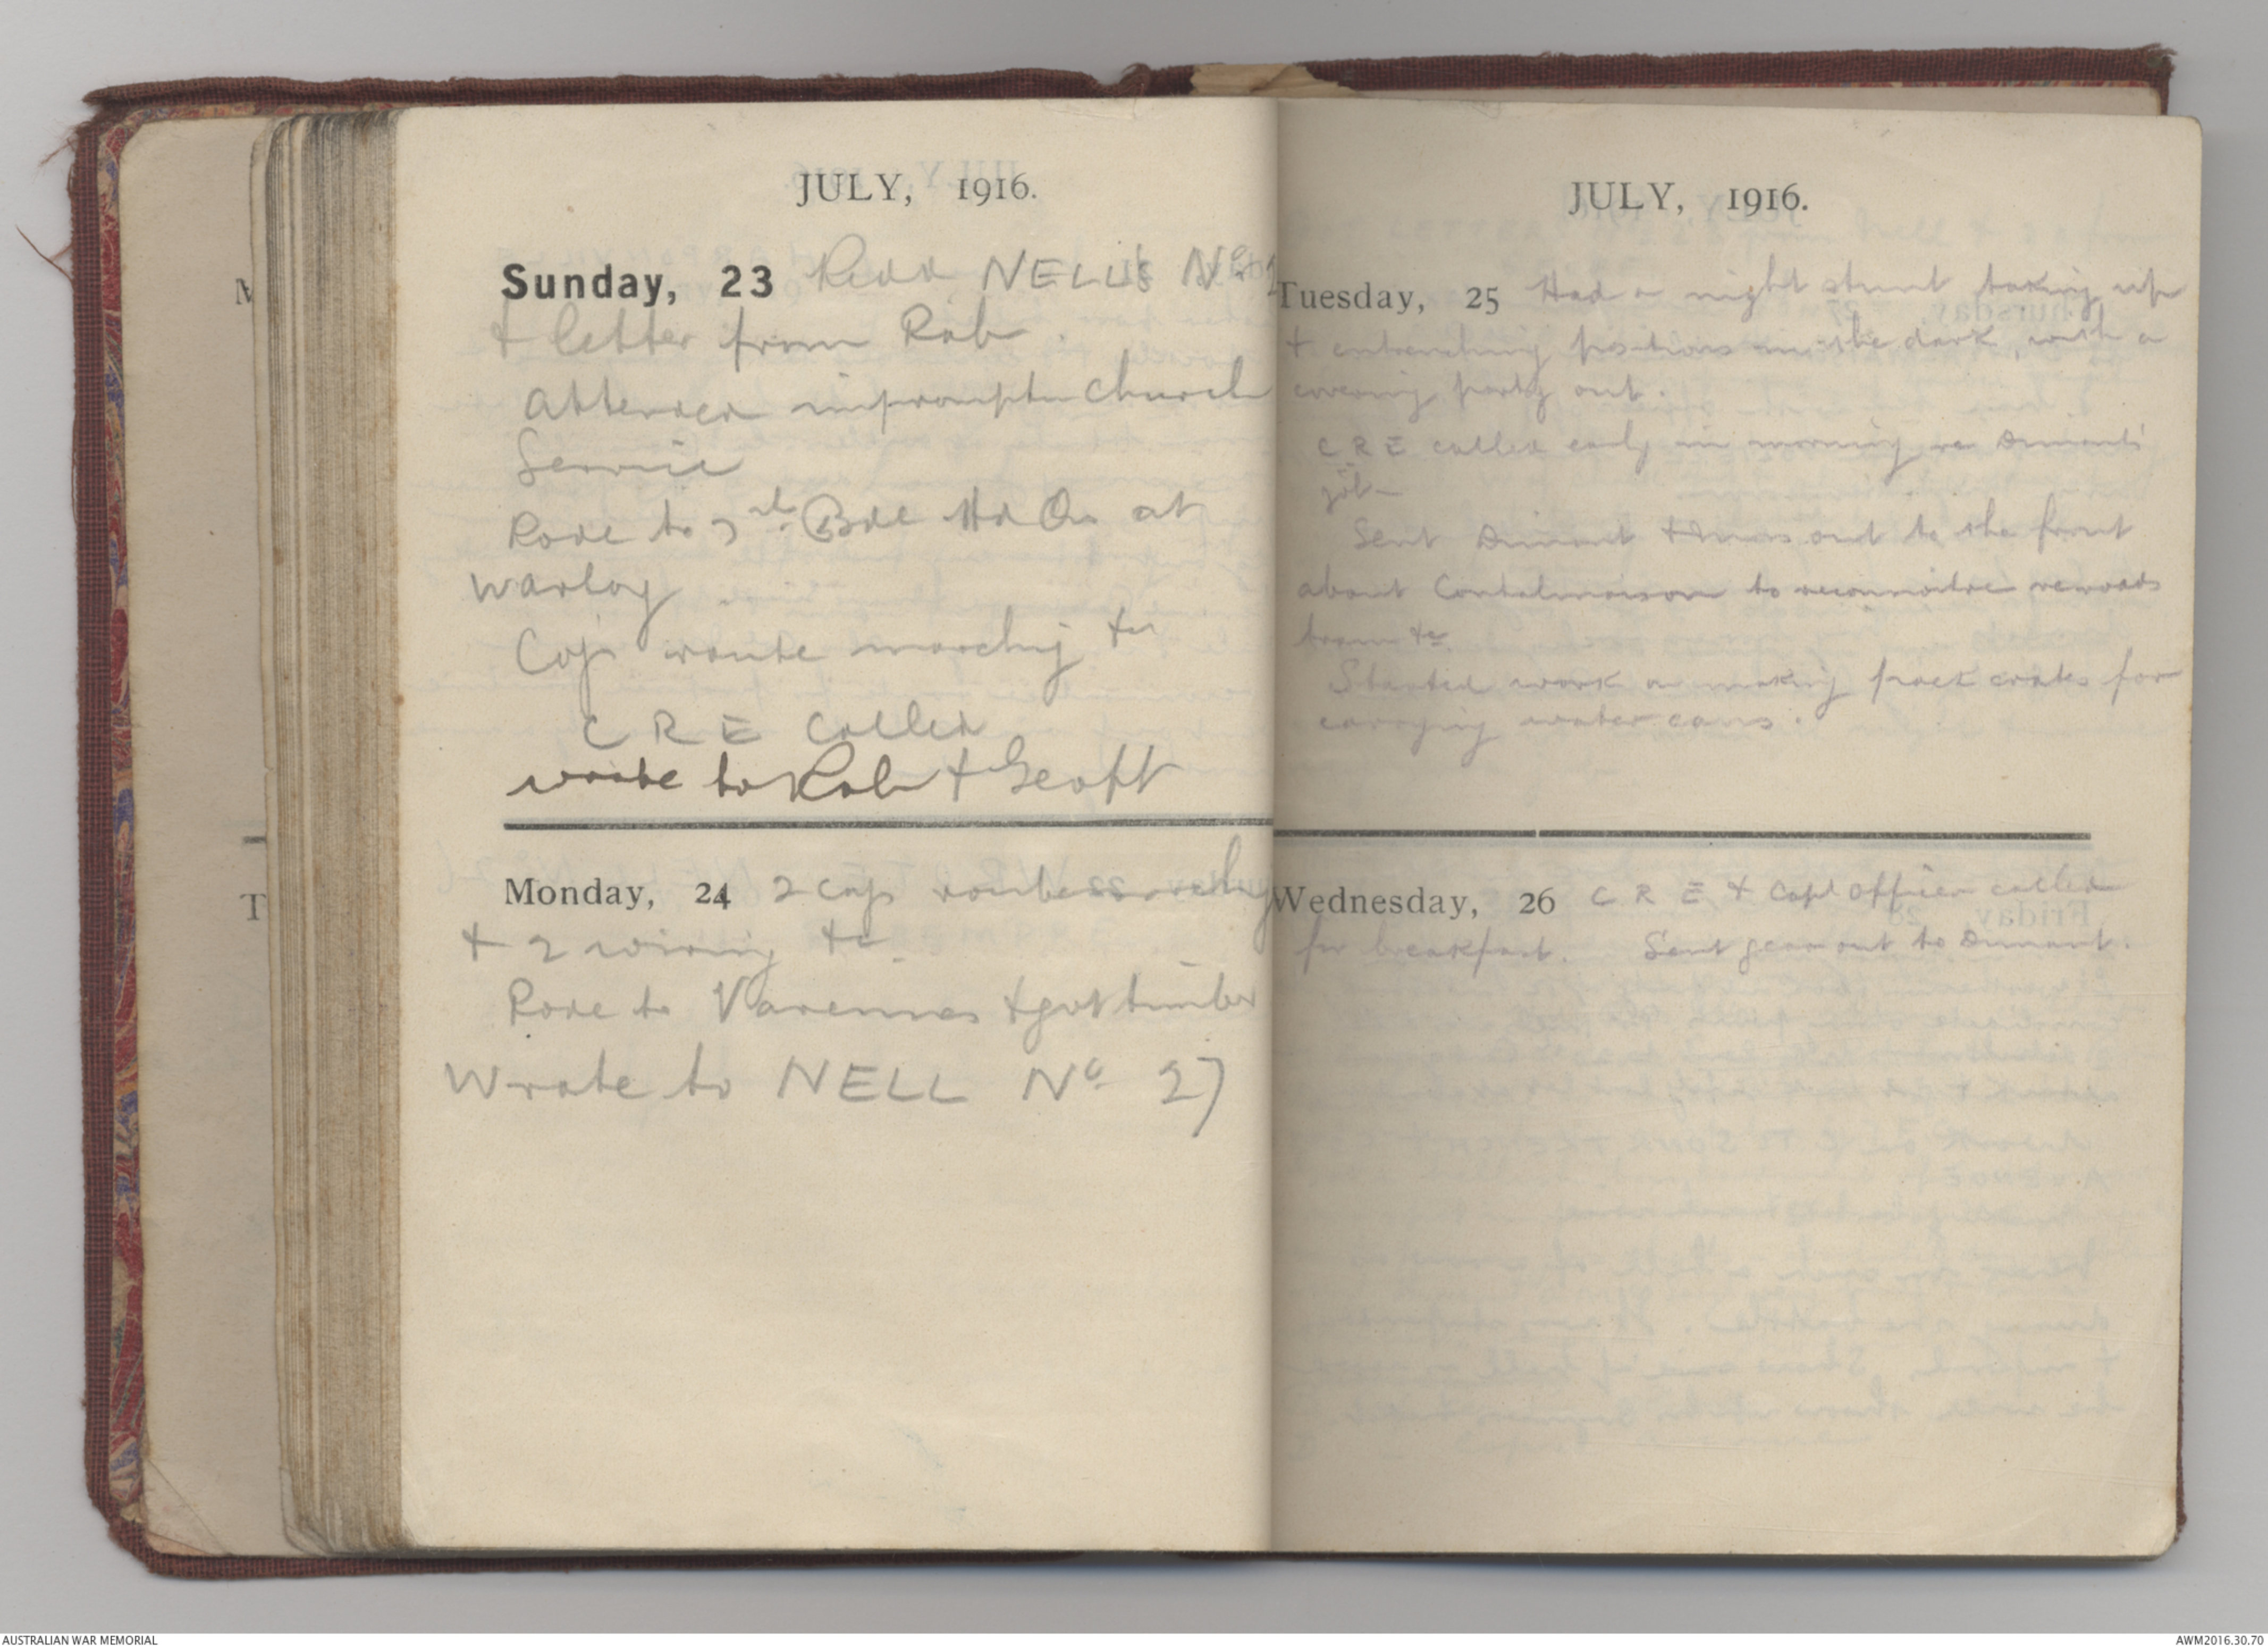 JULY, 1916.
Sunday, 23 Read NELL's No
+ letter from Rob.
Attended impromptu church
Service
Rode to Bde Hd Qrs at
Warloy
Coy route marching &c
C R E called
wrote to Rob + Geoff
Monday, 24 2 Coys route marching
+ 2 wiring &c.
Rode to Varennes + got timber
Wrote to NELL No 27
JULY, 1916.
Tuesday, 25 Had a night stunt taking up
+ entrenching positions in the dark, with a
covering party out.
C R E called early in morning re Dimant's
job
Sent Dimant out to the front
about Contalmaison to reconnoitre re roads
tram &c.
Started work on making pack crates for
carrying water cans.
Wednesday, 26 C R E + Officer called
for breakfast. Sent gear out to Dimant.
M
T
AUSTRALIAN WAR MEMORIAL
AWM2016.30.70